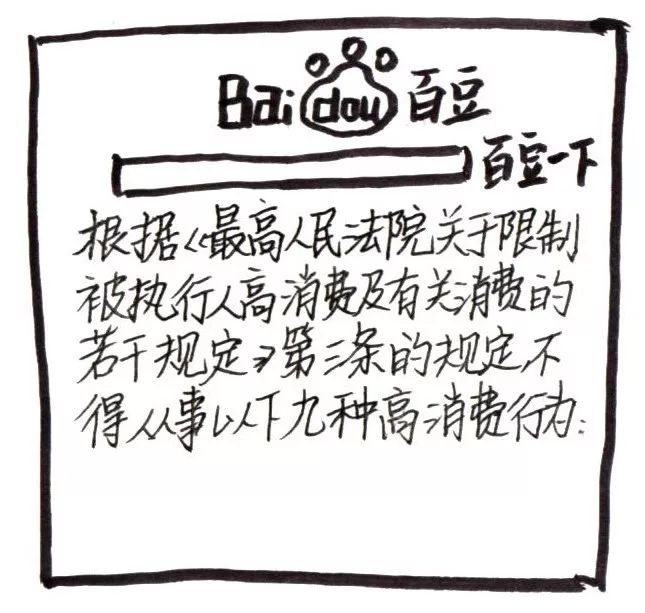 Baidou百豆
百豆一下
根据《最高人民法院关于限制
被执行人高消费及有关消费的
若干规定》第三条的规定,不
得从事以下九种高消费行为: